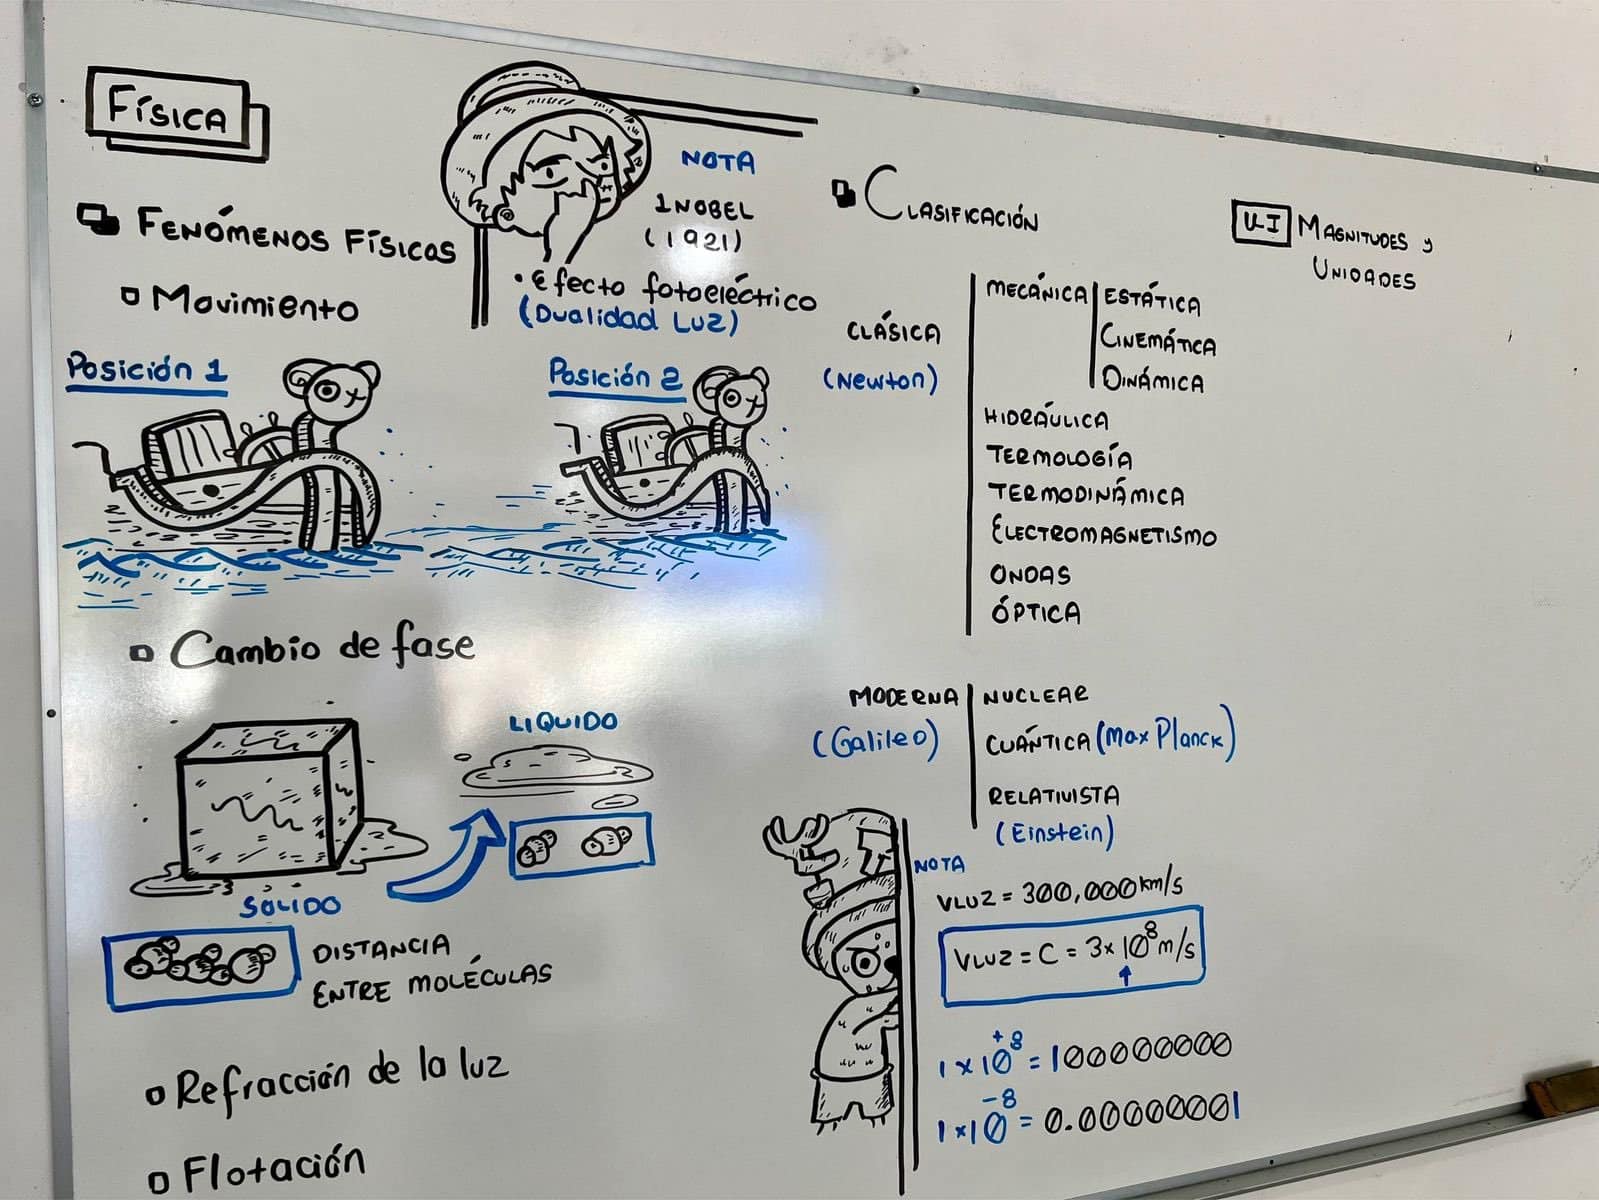 FÍSICA
FENÓMENOS FÍSICOS
Movimiento
NOTA
1 NOBEL
(1921)
• Efecto fotoeléctrico
(Dualidad Luz)
Posición 1
Posición 2
Cambio de fase
LIQUIDO
SÓLIDO
DISTANCIA
ENTRE MOLÉCULAS
Refracción de la luz
Flotación
CLASIFICACIÓN
CLÁSICA
(Newton)
MECÁNICA
ESTÁTICA
CINEMÁTICA
DINÁMICA
HIDRÁULICA
TERMOLOGÍA
TERMODINÁMICA
ELECTROMAGNETISMO
ONDAS
ÓPTICA
MODERNA
(Galileo)
NUCLEAR
CUÁNTICA (Max Planck)
RELATIVISTA
(Einstein)
NOTA
VLUZ = 300,000 km/s
VLUZ = C = 3×10⁸ m/s
1×10⁺⁸ = 100000000
1×10⁻⁸ = 0.00000001
U-I MAGNITUDES y
UNIDADES